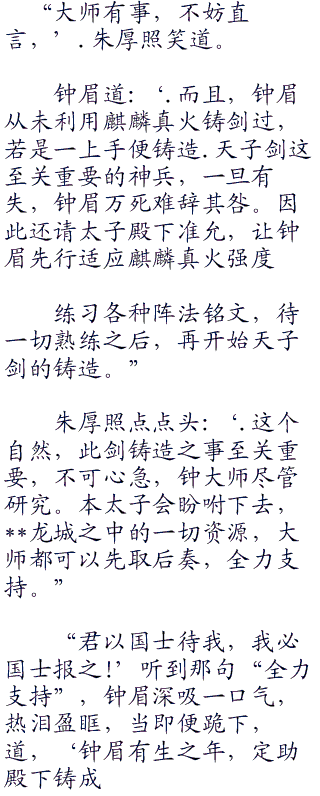 “大师有事，不妨直
言，’.朱厚照笑道。
钟眉道：‘.而且，钟眉
从未利用麒麟真火铸剑过，
若是一上手便铸造.天子剑这
至关重要的神兵，一旦有
失，钟眉万死难辞其咎。因
此还请太子殿下准允，让钟
眉先行适应麒麟真火强度
练习各种阵法铭文，待
一切熟练之后，再开始天子
剑的铸造。”
朱厚照点点头：‘.这个
自然，此剑铸造之事至关重
要，不可心急，钟大师尽管
研究。本太子会盼咐下去，
**龙城之中的一切资源，大
师都可以先取后奏，全力支
持。”
“君以国士待我，我必
国士报之!’听到那句“全力
支持”，钟眉深吸一口气，
热泪盈眶，当即便跪下，
道，‘钟眉有生之年，定助
殿下铸成